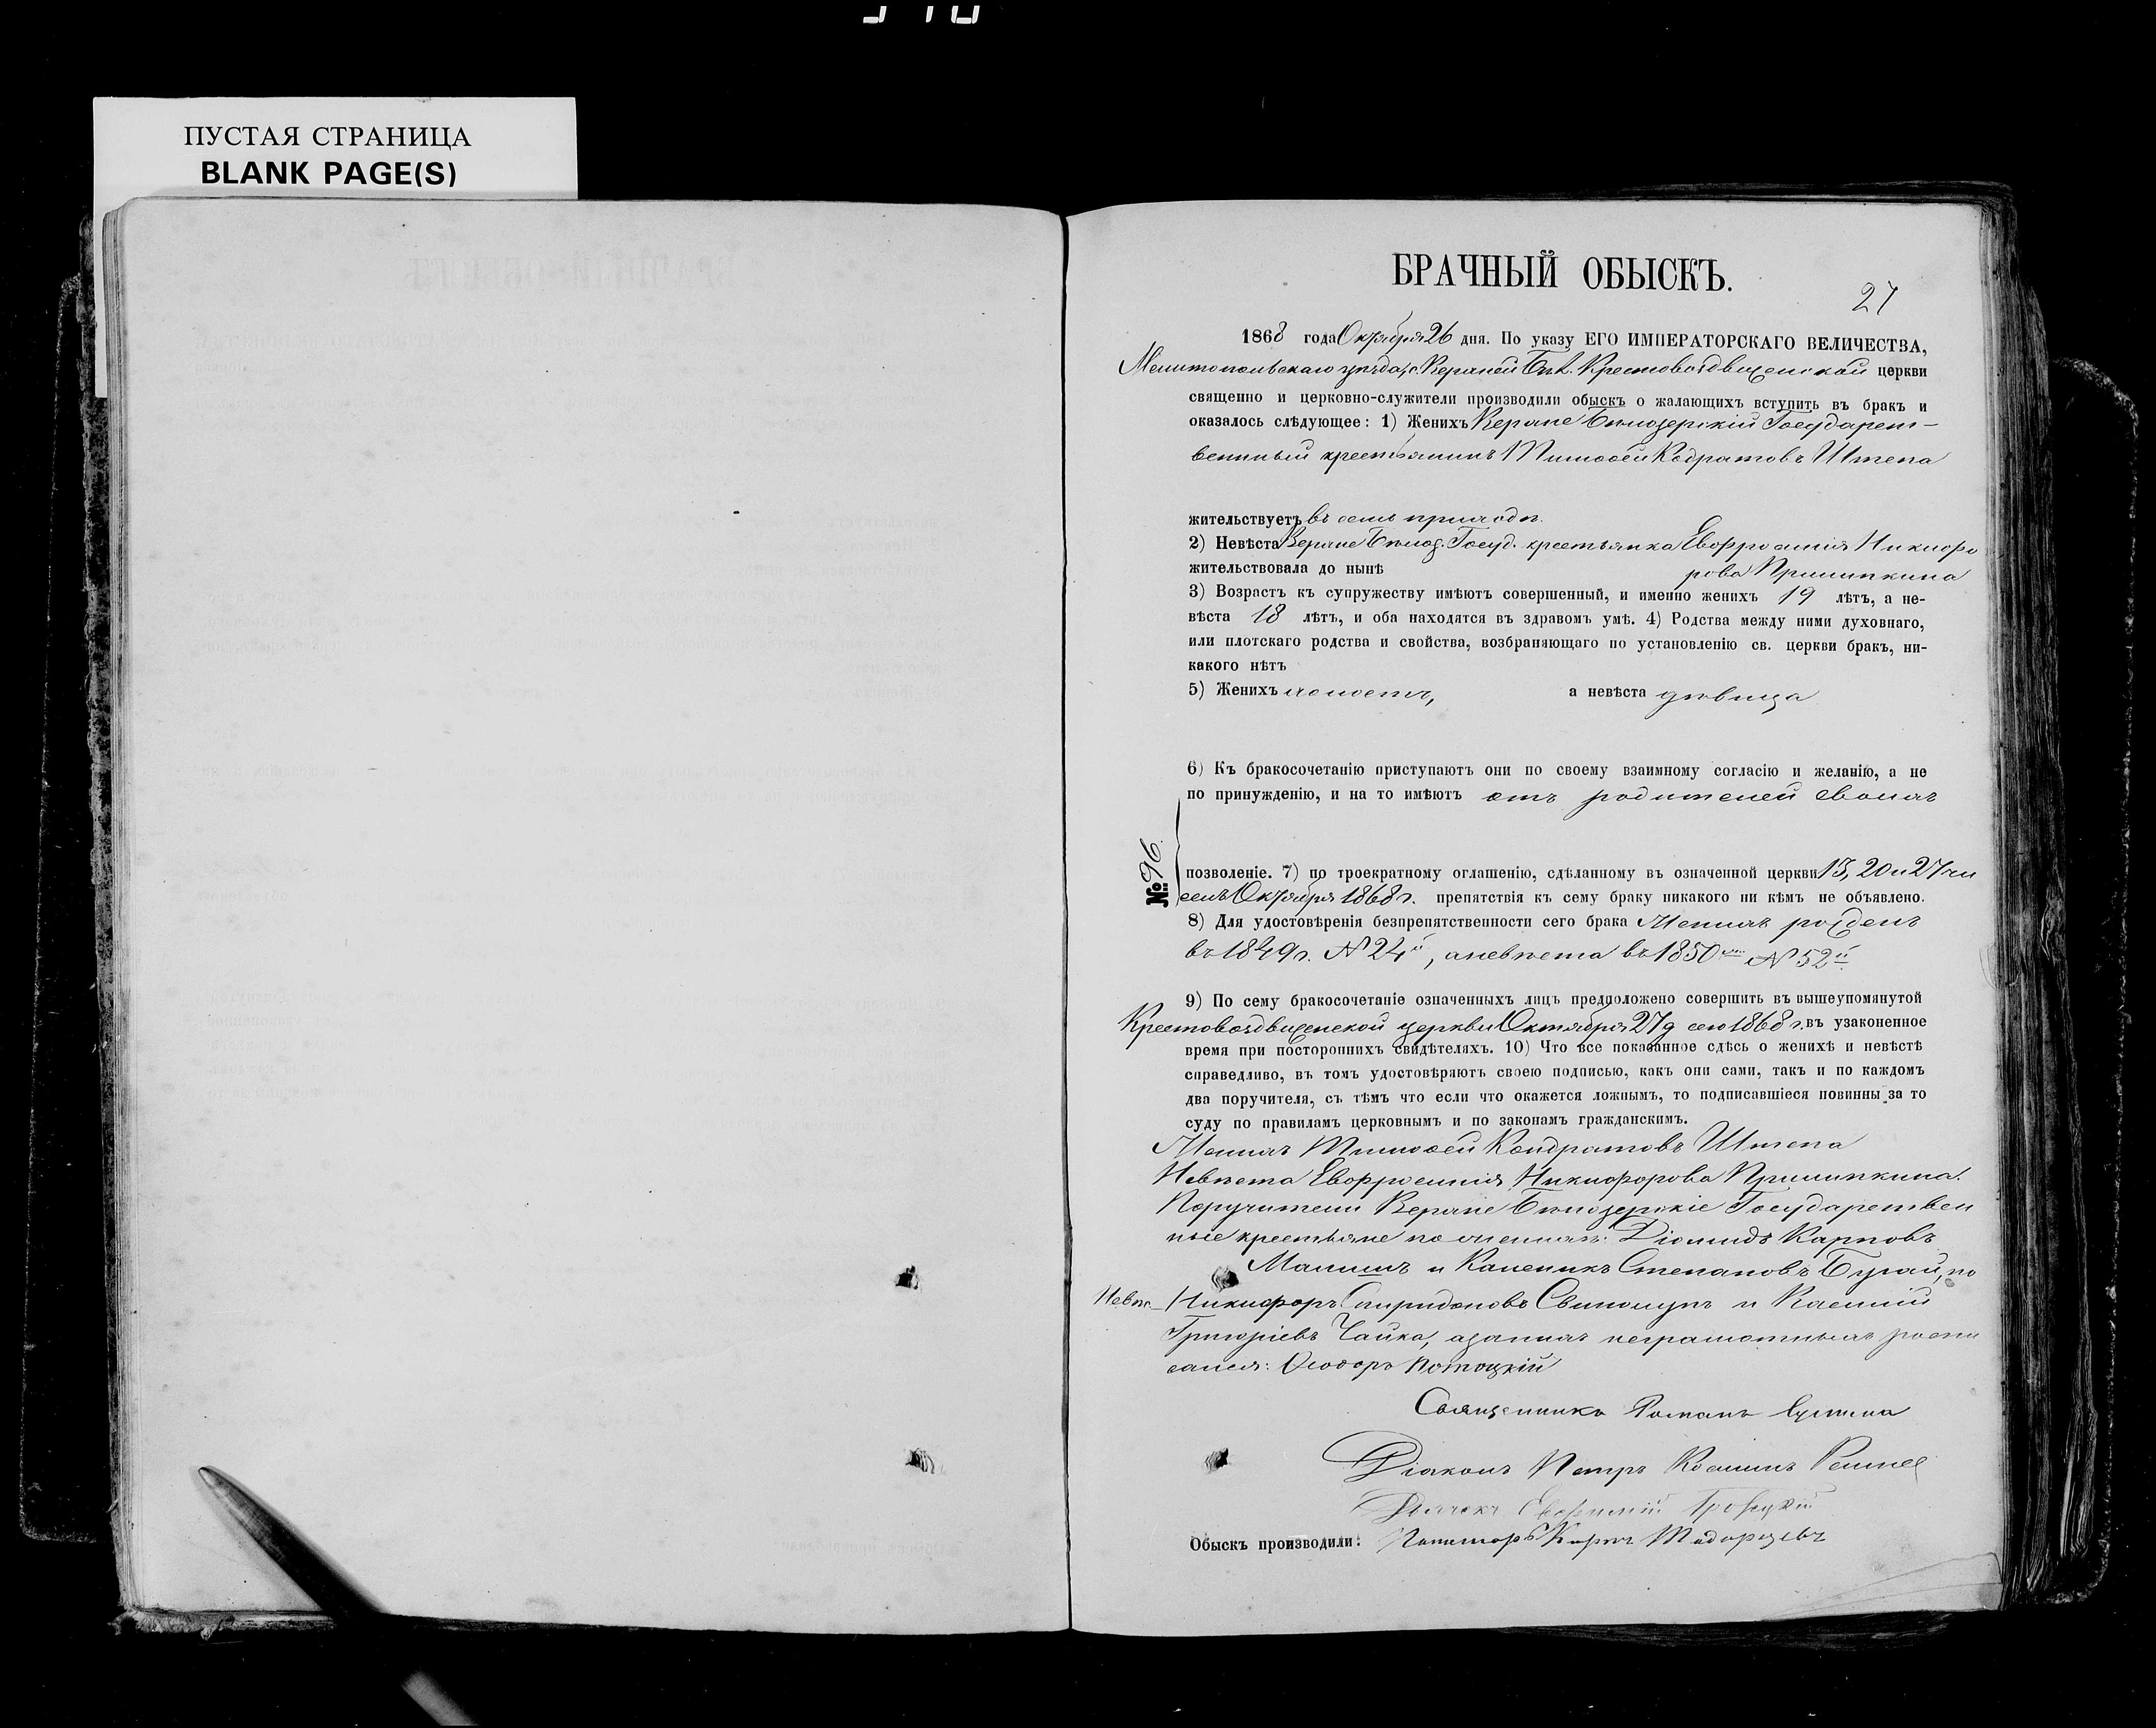 ПУСТАЯ СТРАНИЦА
BLANK PAGE(S)
БРАЧНЫЙ ОБЫСКЪ.
27
1868 года Октября 26 дня. По указу ЕГО ИМПЕРАТОРСКАГО ВЕЛИЧЕСТВА,
Мелитопольскаго уѣзда, с. Верхней Бѣл. Крестовоздвиженской церкви
священно и церковно-служители производили обыскъ о жалающихъ вступить въ бракъ и
оказалось слѣдующее: 1) Женихъ Верхне Бѣлозерскій Государст-
венный крестьянинъ Тимофей Кодратовъ Штепа
жительствуетъ въ семъ приходѣ.
2) Невѣста Верхне Бѣлоз. Госуд. крестьянка Евфросинія Никифо
жительствовала до нынѣ рова Пришипкина
3) Возрастъ къ супружеству имѣютъ совершенный, и именно женихъ 19 лѣтъ, а не-
вѣста 18 лѣтъ, и оба находятся въ здравомъ умѣ. 4) Родства между ними духовнаго,
или плотскаго родства и свойства, возбраняющаго по установленію св. церкви бракъ, ни-
какого нѣтъ
5) Женихъ холостъ, а невѣста дѣвица
6) Къ бракосочетанію приступаютъ они по своему взаимному согласію и желанію, а не
по принужденію, и на то имѣютъ отъ родителей своихъ
№ 96.
позволеніе. 7) по троекратному оглашенію, сдѣланному въ означенной церкви 13, 20 и 27 чи
селъ Октября 1868 г. препятствія къ сему браку никакого ни кѣмъ не объявлено.
8) Для удостовѣренія безпрепятственности сего брака Женихъ рожденъ
въ 1849 г. № 24й, а невѣста въ 1850мъ № 52й
9) По сему бракосочетаніе означенныхъ лицъ предположено совершить въ вышеупомянутой
Крестовоздвиженской церкви Октября 27 д сего 1868 г. въ узаконенное
время при постороннихъ свидѣтеляхъ. 10) Что все показанное сдѣсь о женихѣ и невѣстѣ
справедливо, въ томъ удостовѣряютъ своею подписью, какъ они сами, такъ и по каждомъ
два поручителя, съ тѣмъ что если что окажется ложнымъ, то подписавшіеся повинны за то
суду по правиламъ церковнымъ и по законамъ гражданскимъ.
Женихъ Тимофей Кондратовъ Штепа
Невѣста Евфросинія Никифорова Пришипкина.
Поручители Верхне Бѣлозерскіе Государствен
ные крестьяне по женихѣ: Діомидъ Карповъ
и Каленикъ Степановъ Бугай, по
Невѣс. Никифоръ Спиридоновъ и
Григоріевъ Чайка, а за нихъ неграмотныхъ роспи
сался: Ѳеодоръ Потоцкій
Священникъ Романъ
Діаконъ Петръ
Дьячекъ Евфимій
Обыскъ производили: Пономарь